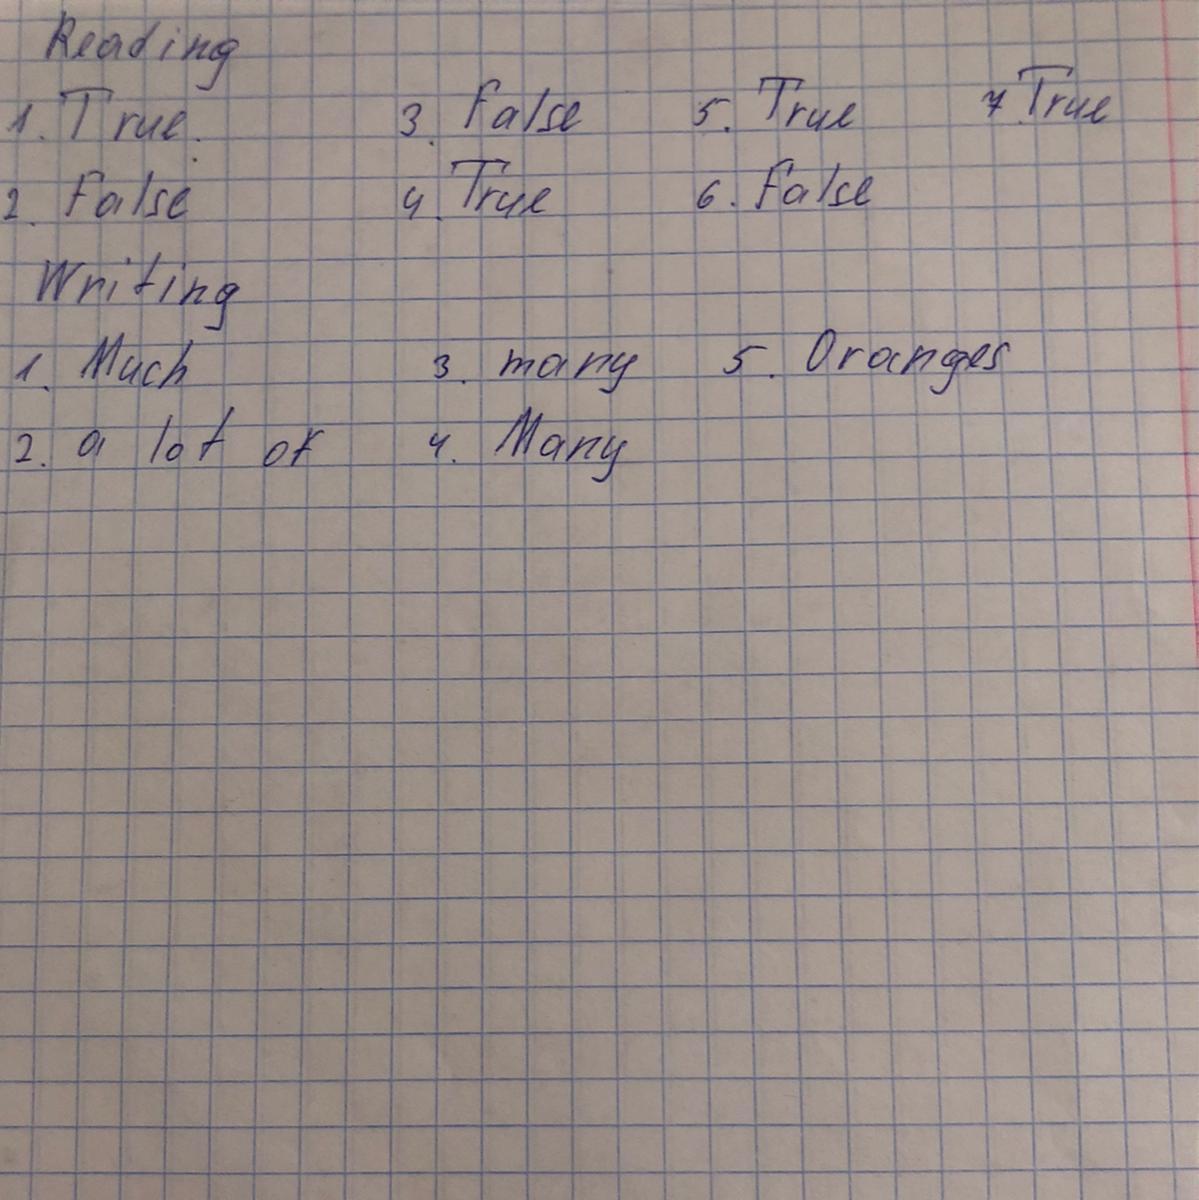 Reading
1. True. 3. False 5. True 7. True
2. False 4. True 6. False
Writing
1. Much 3. many 5. Oranges
2. a lot of 4. Many